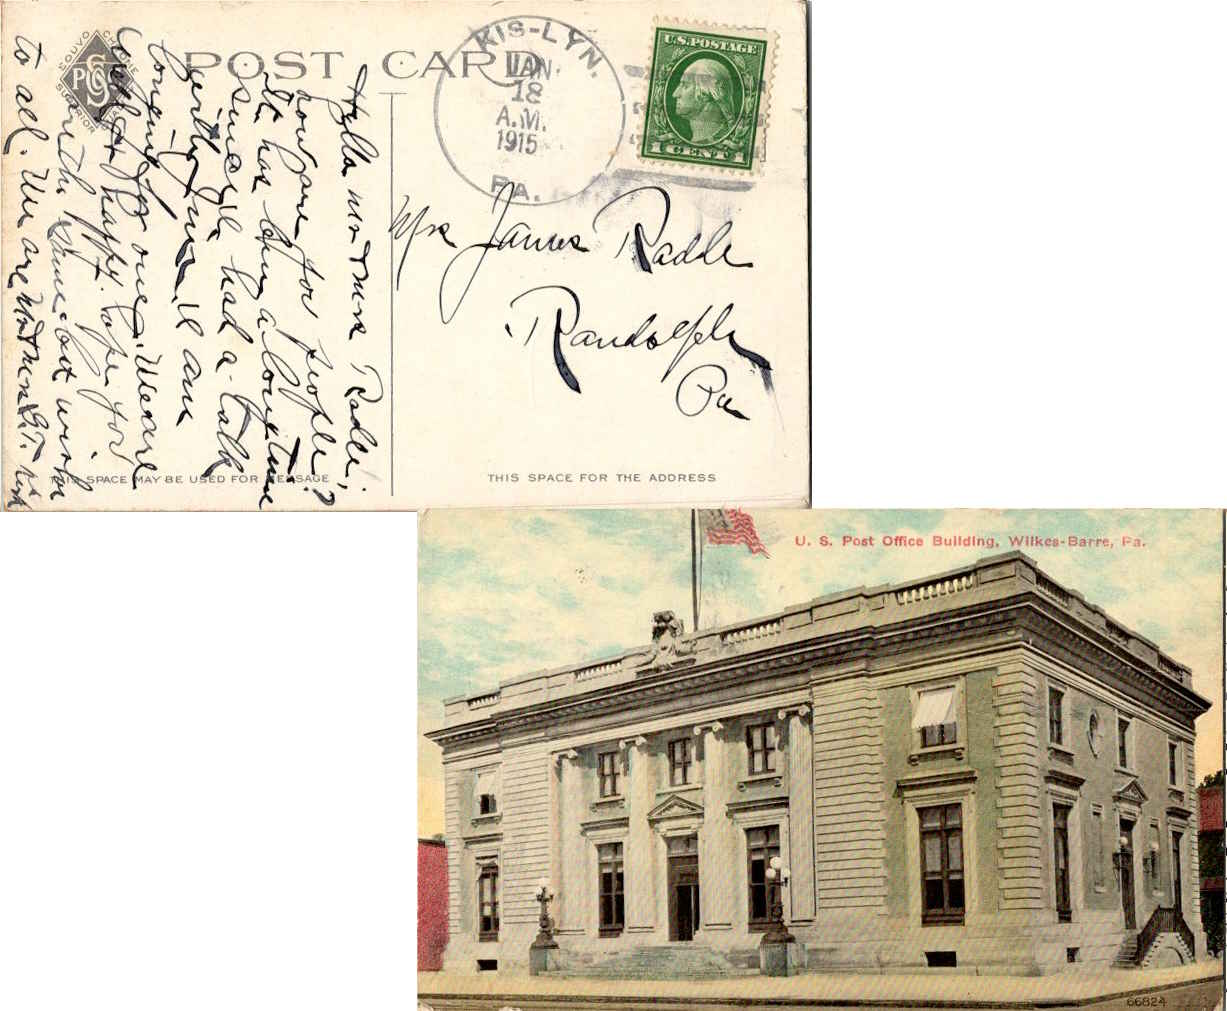 POST CARD
SOUVO CHROME
PSCO
SUPERIOR
KIS-LYN.
JAN
18
A.M.
1915
PA.
U.S. POSTAGE
1 CENT 1
Mrs James Radde
Randolph
Pa
Hello Mr & Mrs Radde,
how are you people?
It has been a long time
since we had a talk
with you. We are
longing for one. We are
well & happy. Hope you
are the same. Best wishes
to all. We are Mr & Mrs
THIS SPACE MAY BE USED FOR MESSAGE
THIS SPACE FOR THE ADDRESS
U. S. Post Office Building, Wilkes-Barre, Pa.
66824